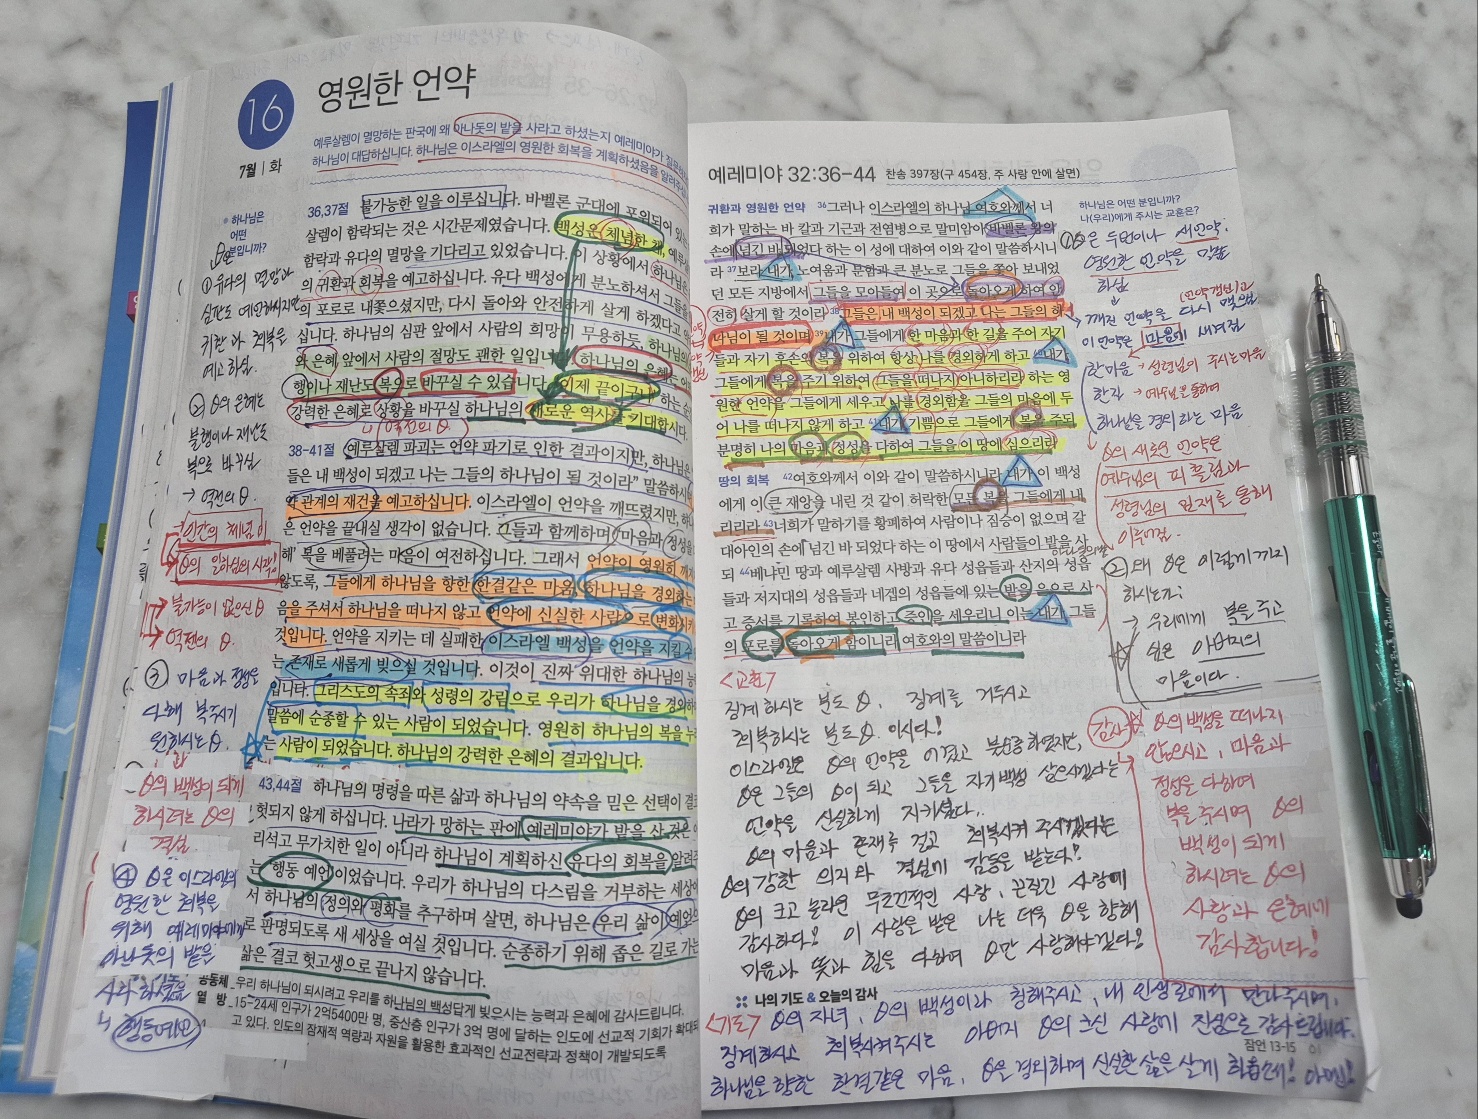 16
7월 | 화
영원한 언약
예루살렘이 멸망하는 판국에 왜 아나돗의 밭을 사라고 하셨는지 예레미야가
하나님이 대답하십니다. 하나님은 이스라엘의 영원한 회복을 계획하셨음을
하나님은
어떤
분입니까?
① 유다의 멸망과
심판도 예언하시지만
귀환과 회복을
예고하심.
불행이나 재난도
복으로 바꾸심
→ 역전의
인간의 체념이
불가능이 없으신
역전의
③ 마음과 정성을
다해 복주시기
원하시는
의 백성이 되게
하시려는
결심.
④ 은 이스라엘의
영원한 회복을
위해 예레미야에게
아나돗의 밭을
행동예언
36,37절 불가능한 일을 이루십니다. 바벨론 군대에 포위되어
살렘이 함락되는 것은 시간문제였습니다. 백성은 체념한 채,
함락과 유다의 멸망을 기다리고 있었습니다. 이 상황에서 하나님은
의 귀환과 회복을 예고하십니다. 유다 백성에게 분노하셔서 그들을
의 포로로 내쫓으셨지만, 다시 돌아와 안전하게 살게 하겠다고
십니다. 하나님의 심판 앞에서 사람의 희망이 무용하듯, 하나님의
와 은혜 앞에서 사람의 절망도 괜한 일입니다. 하나님의 은혜는
행이나 재난도 복으로 바꾸실 수 있습니다. 이제 끝이구나 하는
강력한 은혜로 상황을 바꾸실 하나님의 새로운 역사를 기대합시다.
38-41절 예루살렘 파괴는 언약 파기로 인한 결과이지만, 하나님은
들은 내 백성이 되겠고 나는 그들의 하나님이 될 것이라” 말씀하시
약 관계의 재건을 예고하십니다. 이스라엘이 언약을 깨뜨렸지만,
은 언약을 끝내실 생각이 없습니다. 그들과 함께하며 마음과 정성을
해 복을 베풀려는 마음이 여전하십니다. 그래서 언약이 영원히
않도록, 그들에게 하나님을 향한 한결같은 마음, 하나님을 경외하는
음을 주셔서 하나님을 떠나지 않고 언약에 신실한 사람으로 변화시키
것입니다. 언약을 지키는 데 실패한 이스라엘 백성을 언약을 지킬
는 존재로 새롭게 빚으실 것입니다. 이것이 진짜 위대한 하나님의
입니다. 그리스도의 속죄와 성령의 강림으로 우리가 하나님을 경외하
말씀에 순종할 수 있는 사람이 되었습니다. 영원히 하나님의 복을
는 사람이 되었습니다. 하나님의 강력한 은혜의 결과입니다.
43,44절 하나님의 명령을 따른 삶과 하나님의 약속을 믿은 선택이
헛되지 않게 하십니다. 나라가 망하는 판에 예레미야가 밭을 산 것은
리석고 무가치한 일이 아니라 하나님이 계획하신 유다의 회복을
는 행동 예언이었습니다. 우리가 하나님의 다스림을 거부하는 세상에
서 하나님의 정의와 평화를 추구하며 살면, 하나님은 우리 삶이 예언
로 판명되도록 새 세상을 여실 것입니다. 순종하기 위해 좁은 길로 가는
삶은 결코 헛고생으로 끝나지 않습니다.
공동체 우리 하나님이 되시려고 우리를 하나님의 백성답게 빚으시는 능력과 은혜에 감사드립니다.
열 방 15-24세 인구가 2억5400만 명, 중산층 인구가 3억 명에 달하는 인도에 선교적 기회가
고 있다. 인도의 잠재적 역량과 자원을 활용한 효과적인 선교전략과 정책이 개발되도록
예레미야 32:36-44 찬송 397장(구 454장, 주 사랑 안에 살면)
귀환과 영원한 언약 36그러나 이스라엘의 하나님 여호와께서 너
희가 말하는 바 칼과 기근과 전염병으로 말미암아 바벨론 왕의
손에 넘긴 바 되었다 하는 이 성에 대하여 이와 같이 말씀하시니
라 37보라 내가 노여움과 분함과 큰 분노로 그들을 쫓아 보내었
던 모든 지방에서 그들을 모아들여 이 곳으로 돌아오게 하여 안
전히 살게 할 것이라 38그들은 내 백성이 되겠고 나는 그들의 하
나님이 될 것이며 39내가 그들에게 한 마음과 한 길을 주어 자기
들과 자기 후손의 복을 위하여 항상 나를 경외하게 하고 40내가
그들에게 복을 주기 위하여 그들을 떠나지 아니하리라 하는 영
원한 언약을 그들에게 세우고 나를 경외함을 그들의 마음에 두
어 나를 떠나지 않게 하고 41내가 기쁨으로 그들에게 복을 주되
분명히 나의 마음과 정성을 다하여 그들을 이 땅에 심으리라
땅의 회복 42여호와께서 이와 같이 말씀하시니라 내가 이 백성
에게 이 큰 재앙을 내린 것 같이 허락한 모든 복을 그들에게 내
리리라 43너희가 말하기를 황폐하여 사람이나 짐승이 없으며 갈
대아인의 손에 넘긴 바 되었다 하는 이 땅에서 사람들이 밭을 사
되 44베냐민 땅과 예루살렘 사방과 유다 성읍들과 산지의 성읍
들과 저지대의 성읍들과 네겝의 성읍들에 있는 밭을 은으로 사
고 증서를 기록하여 봉인하고 증인을 세우리니 이는 내가 그들
의 포로를 돌아오게 함이니라 여호와의 말씀이니라
하나님은 어떤 분입니까?
나(우리)에게 주시는 교훈은?
은 두번이나 새언약,
영원한 언약을 말씀
하심
깨진 언약을 다시 맺으심
이 언약은 마음에 새겨짐
한마음 → 성령님이 주시는마음
한길 → 예수님을통하여
하나님을 경외하는 마음
의 새로운 언약은
예수님의 피 흘림과
성령님의 임재를 통해
이루어짐.
② 왜 은 이렇게까지
하시는가?
→ 우리에게 복을 주고
싶은 아버지의
마음이다.
<교훈>
징계하시는 분도 , 징계를 거두시고
회복하시는 분도 이시다!
이스라엘은 의 언약을 어겼고 불순종 하였지만,
은 그들의 이 되고 그들을 자기백성 삼으시겠다는
언약을 신실하게 지키셨다.
의 마음과 존재를 걸고 회복시켜 주시겠다는
의 강한 의지와 결심에 감동을 받는다!
의 크고 놀라운 무조건적인 사랑, 끈질긴 사랑에
감사하다! 이 사랑을 받은 나는 더욱 을 향해
마음과 뜻과 힘을 다하여 만 사랑해야겠다!
감사
의 백성을 떠나지
않으시고, 마음과
정성을 다하여
복을 주시며 의
백성이 되게
하시려는 의
사랑과 은혜에
감사합니다!
나의 기도 & 오늘의 감사
<기도> 의 자녀, 의 백성이라 칭해주시고, 내 인생길에서 만나주시며,
징계하시고 회복시켜주시는 아버지 의 크신 사랑에 진심으로 감사드립니다.
잠언 13-15
하나님을 향한 한결같은 마음, 을 경외하며 신실한 삶을 살게 하옵소서! 아멘!